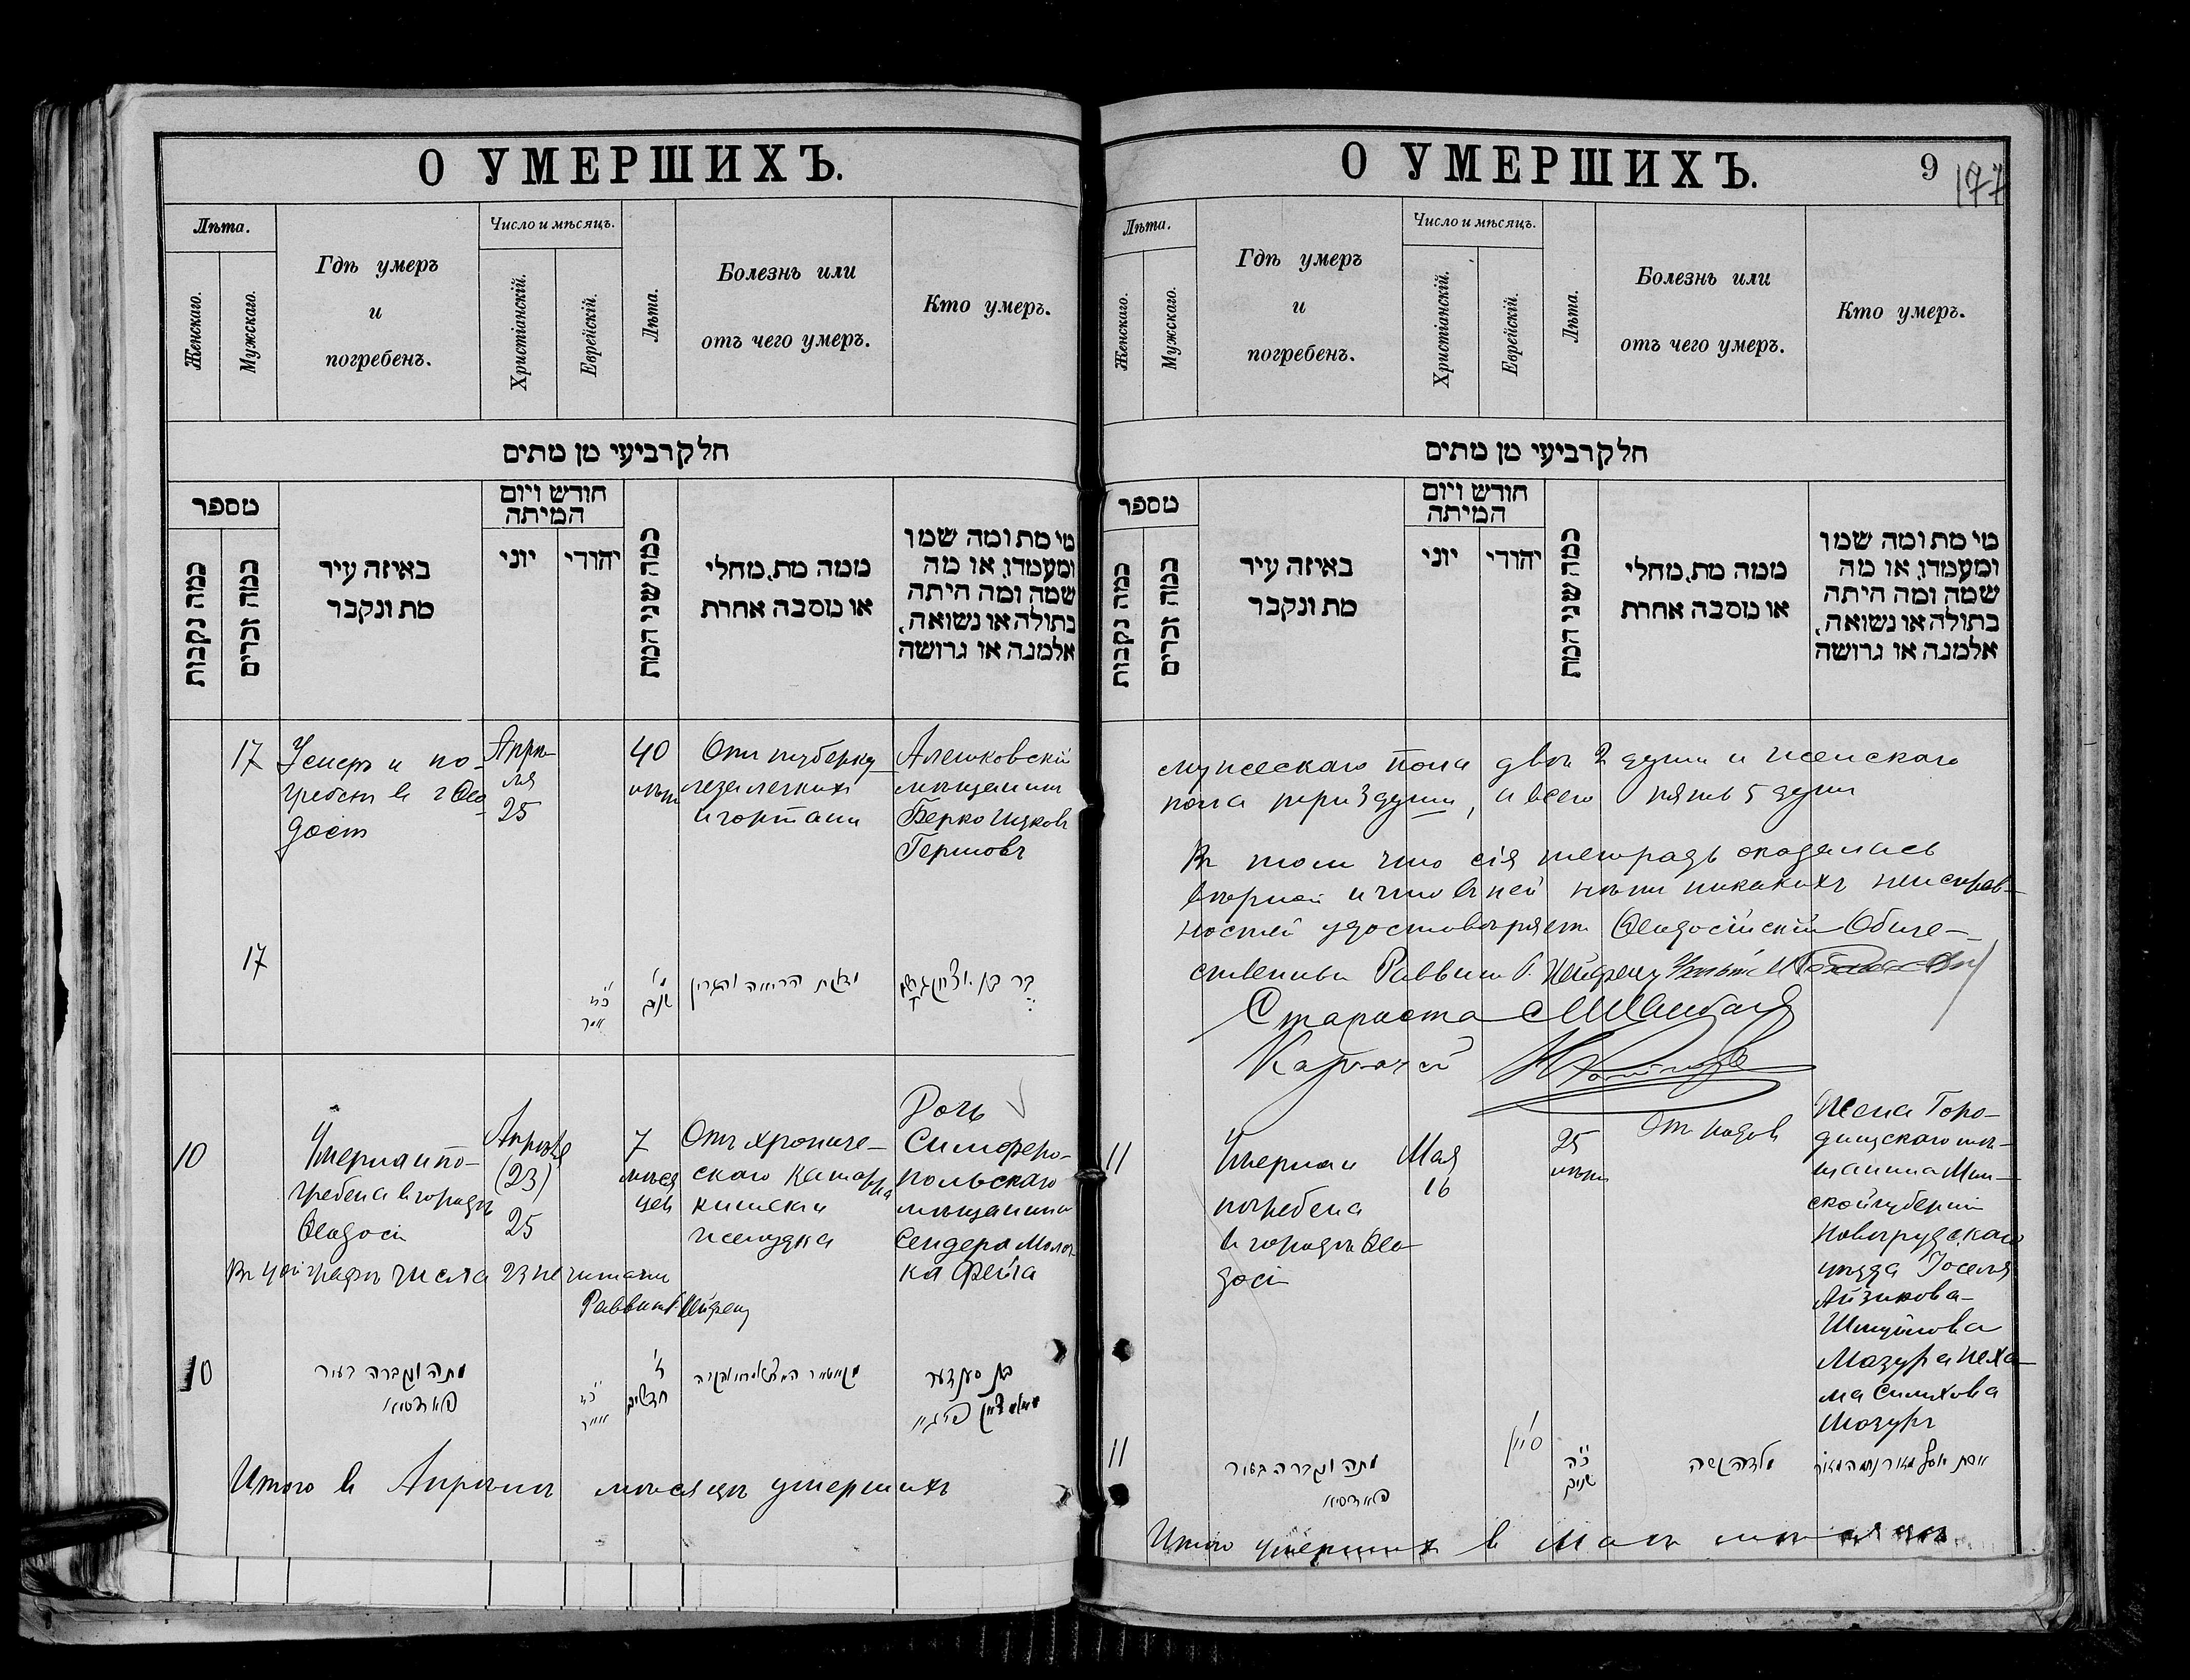 О УМЕРШИХЪ.
Лѣта.
Женскаго.
Мужскаго.
Гдѣ умеръ
и
погребенъ.
Число и мѣсяцъ.
Христіанскій.
Еврейскій.
Лѣта.
Болезнь или
отъ чего умеръ.
Кто умеръ.
חלק רביעי מן מתים
מספר
כמה נקבות
כמה זכרים
באיזה עיר
מת ונקבר
חודש ויום
המיתה
יוני
יהודי
כמה שני המת
ממה מת, מחלי
או מסבה אחרת
מי מת ומה שמו
ומעמדו, או מה
שמה ומה היתה
בתולה או נשואה,
אלמנה או גרושה
17
Умеръ и по-
гребенъ в г Ѳео
досіи
Апрѣ-
ля
25
40
лѣтъ
Отъ туберку
леза легкихъ
и гортани
Алешковскій
мѣщанинъ
Берко Ицковъ
Гершовъ
17
כ״ז
אייר
מ׳
שנים
10
Умерла и по-
гребена в городѣ
Ѳеодосіи
Апрѣля
(23)
25
7
мѣся
цев
Отъ хрониче-
скаго катарра
кишекъ и
желудка
Дочь
Симферо-
польскаго
мѣщанина
Сендера
Фейга
числа 23 не читать
Раввинъ
10
מתה ונקברה בעיר
פֿאדסיא
כ״ז
אייר
ז׳
חדשים
בת סענדער
Итого в Апрѣлѣ мѣсяцѣ умершихъ
О УМЕРШИХЪ.
9
177
Лѣта.
Женскаго.
Мужскаго.
Гдѣ умеръ
и
погребенъ.
Число и мѣсяцъ.
Христіанскій.
Еврейскій.
Лѣта.
Болезнь или
отъ чего умеръ.
Кто умеръ.
חלק רביעי מן מתים
מספר
כמה נקבות
כמה זכרים
באיזה עיר
מת ונקבר
חודש ויום
המיתה
יוני
יהודי
כמה שני המת
ממה מת, מחלי
או מסבה אחרת
מי מת ומה שמו
ומעמדו, או מה
שמה ומה היתה
בתולה או נשואה,
אלמנה או גרושה
мужескаго пола двѣ 2 души и женскаго
пола три 3 души, а всего пять 5 душъ
Въ томъ что сія тетрадь оказалась
вѣрной и что в ней нѣтъ никакихъ неисправ-
ностей удостовѣряетъ Ѳеодосійскій Обще-
ственный Раввинъ
Староста
Казначей
11
Умерла и
погребена
в городѣ Ѳео
досіи
Мая
16
25
лѣтъ
От родов
Жена Горо-
дищскаго мѣ-
щанина Мин-
ской губерніи
Новогрудскаго
уѣзда Іоселя
Айзикова-
Шмуйлова
Мазура Неха-
ма Симхова
Мазуръ
11
מתה ונקברה בעיר
פֿאדסיא
סיון
כ״ה
שנים
Итого умершихъ в Маѣ мѣсяцѣ